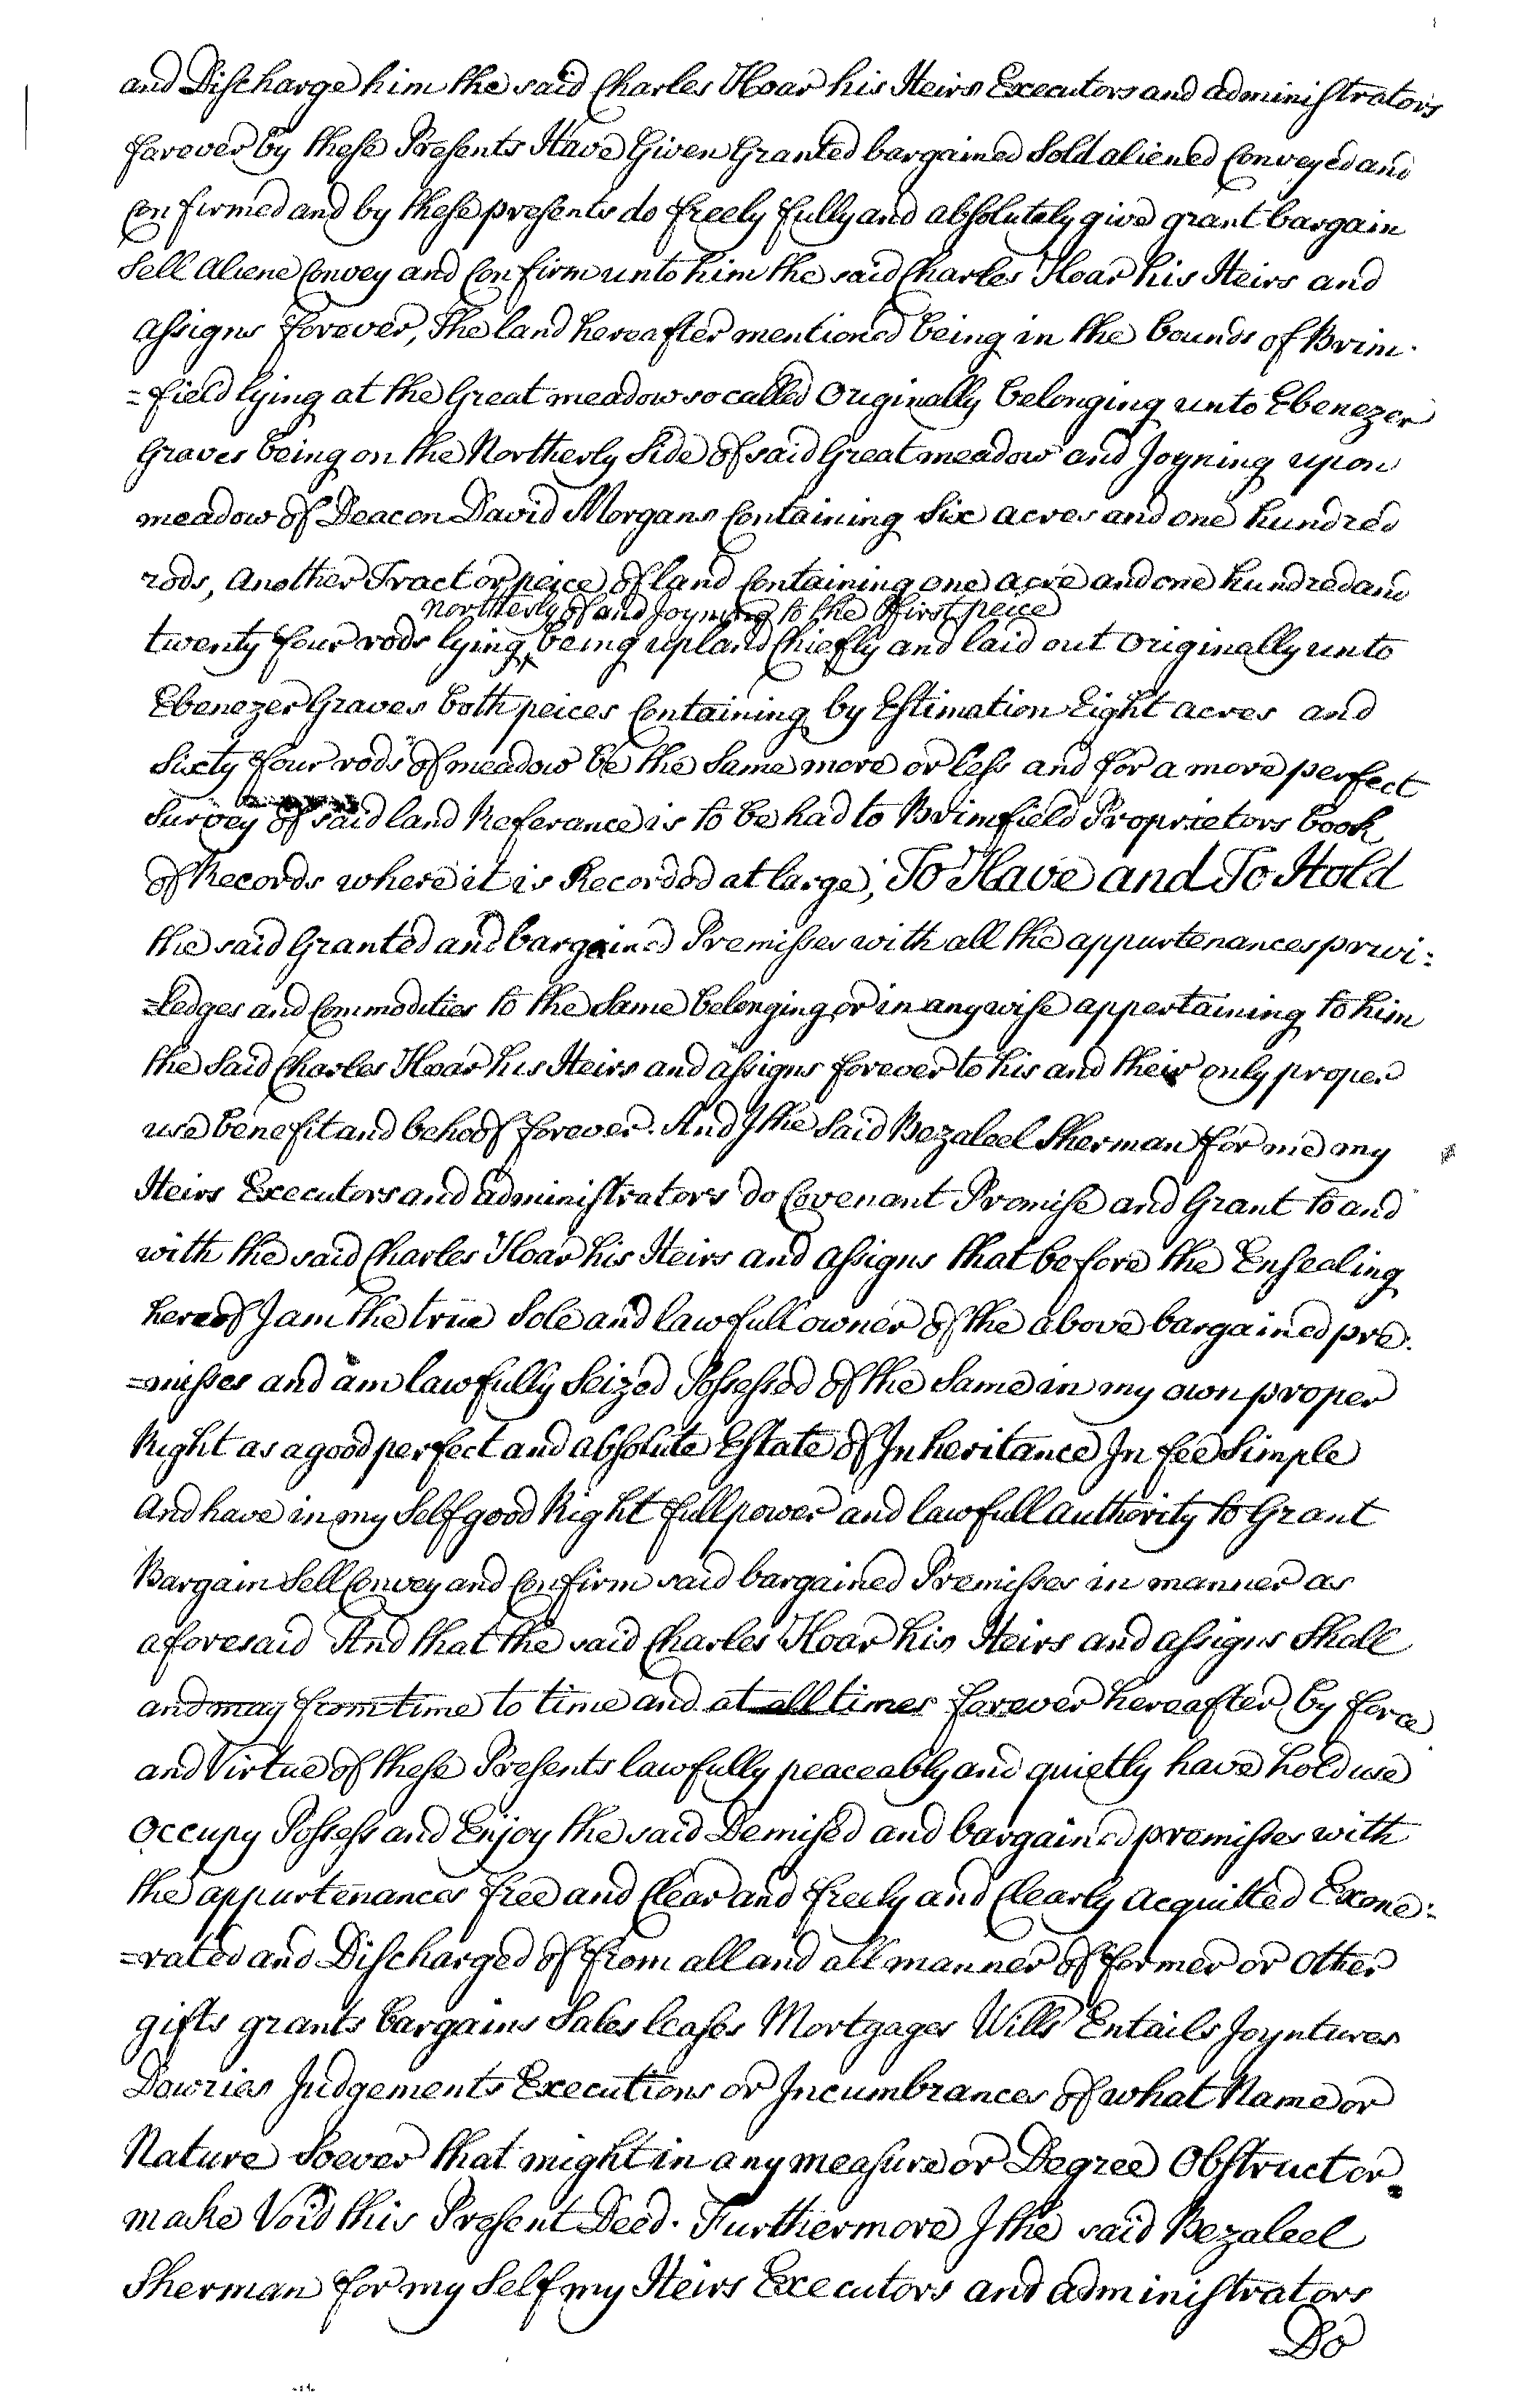 and Discharge him the said Charles Hoar his Heirs Executors and administrators
forever by these Presents Have Given Granted bargained Sold aliened Conveyed and
Confirmed and by these presents do freely fully and absolutely give grant bargain
Sell Aliene Convey and Confirm unto him the said Charles Hoar his Heirs and
assigns forever, The land hereafter mentioned being in the bounds of Brim-
=field lying at the Great meadow so called Originally belonging unto Ebenezer
Graves being on the Northerly Side of said Great meadow and Joyning upon
meadow of Deacon David Morgans Containing Six acres and one hundred
rods, Another Tract or peice of land Containing one acre and one hundred and
northerly of and Joyning to the first peice
twenty four rods lying ‸ being upland Chiefly and laid out Originally unto
Ebenezer Graves both peices Containing by Estimation Eight acres and
Sixty four rods of meadow be the Same more or less and for a more perfect
Survey of said land Referance is to be had to Brimfield Proprietors book
of Records where it is Recorded at large, To Have and To Hold
the said Granted and bargained Premisses with all the appurtenances privi:
=ledges and Commodities to the Same belonging or in any wise appertaining to him
the Said Charles Hoar his Heirs and assigns forever to his and their only proper
use benefit and behoof forever. And I the Said Bezaleel Sherman for me my
Heirs Executors and administrators do Covenant Promise and Grant to and
with the said Charles Hoar his Heirs and assigns that before the Ensealing
hereof I am the true Sole and lawfull owner of the above bargained pre:
=misses and am lawfully Seized Possessed of the Same in my own proper
Right as a good perfect and absolute Estate of Inheritance In fee Simple
And have in my Self good Right full power and lawfull authority to Grant
Bargain Sell Convey and Confirm said bargained Premisses in manner as
aforesaid And that the said Charles Hoar his Heirs and assigns Shall
and may from time to time and at all times forever hereafter by force
and Virtue of these Presents lawfully peaceably and quietly have hold use
Occupy Possess and Enjoy the said Demised and bargained premisses with
the appurtenances free and Clear and freely and Clearly acquitted Exone:
=rated and Discharged of from all and all manner of former or other
gifts grants bargains Sales leases Mortgages Wills Entails Joyntures
Dowries Judgements Executions or Incumbrances of what Name or
Nature Soever that might in any measure or Degree Obstruct or
make Void this Present Deed. Furthermore I the said Bezaleel
Sherman for my Self my Heirs Executors and administrators
Do